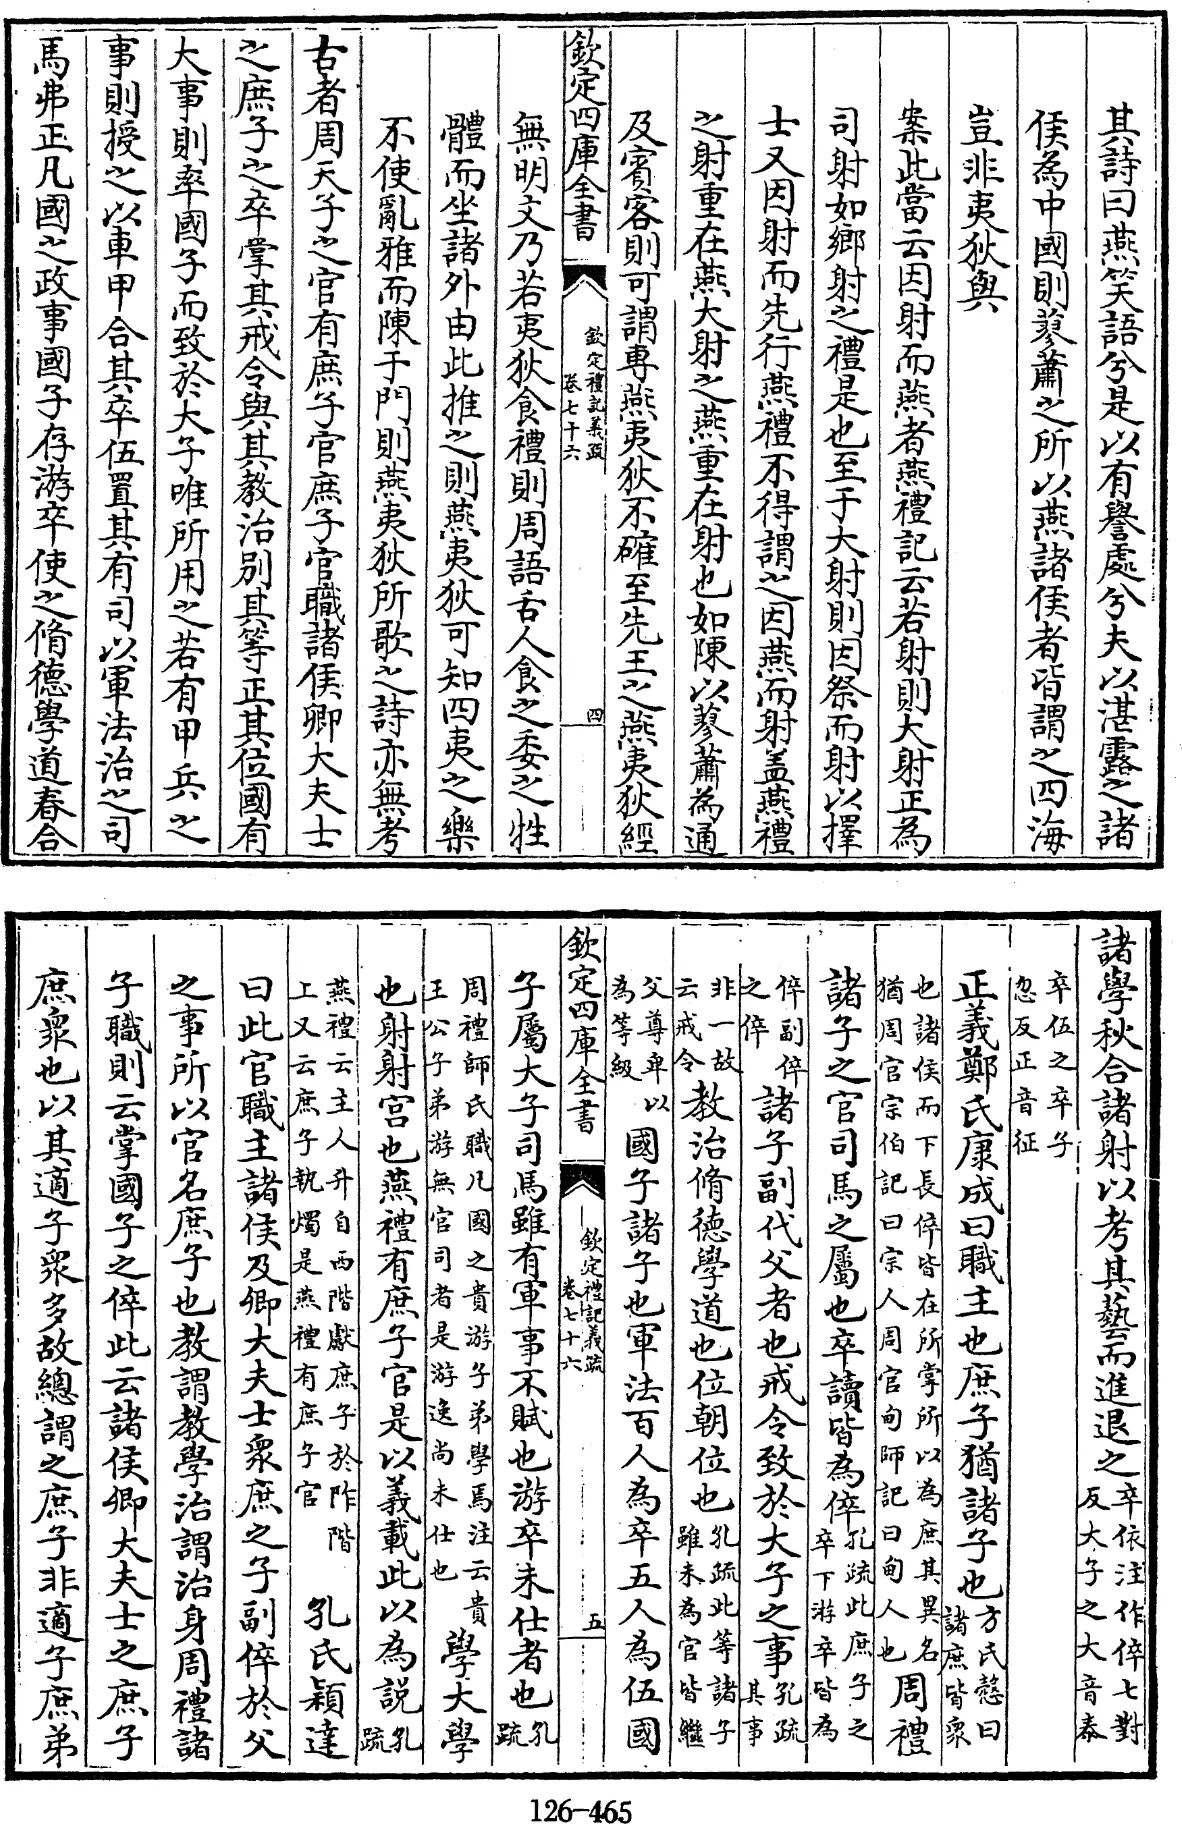 其詩曰燕笑語兮是以有譽處兮夫以湛露之諸
侯為中國則蓼蕭之所以燕諸侯者皆謂之四海
豈非夷狄與
案此當云因射而燕者燕禮記云若射則大射正為
司射如鄉射之禮是也至于大射則因祭而射以擇
士又因射而先行燕禮不得謂之因燕而射蓋燕禮
之射重在燕大射之燕重在射也如陳以蓼蕭為通
及賓客則可謂專燕夷狄不確至先王之燕夷狄經
欽定四庫全書
欽定禮記義疏
卷七十六
四
無明文乃若夷狄食禮則周語舌人食之委之牲
體而坐諸外由此推之則燕夷狄可知四夷之樂
不使亂雅而陳于門則燕夷狄所歌之詩亦無考
古者周天子之官有庶子官庶子官職諸侯卿大夫士
之庶子之卒掌其戒令與其教治別其等正其位國有
大事則率國子而致於大子唯所用之若有甲兵之
事則授之以車甲合其卒伍置其有司以軍法治之司
馬弗正凡國之政事國子存游卒使之脩德學道春合
諸學秋合諸射以考其藝而進退之卒依注作倅七對
反大子之大音泰
卒伍之卒子
忽反正音征
正義鄭氏康成曰職主也庶子猶諸子也方氏慤曰
諸庶皆衆
也諸侯而下長倅皆在所掌所以為庶其異名
猶周官宗伯記曰宗人周官甸師記曰甸人也周禮
諸子之官司馬之屬也卒讀皆為倅孔疏此庶子之
卒下游卒皆為
倅副倅
之倅諸子副代父者也戒令致於大子之事孔疏
其事
非一故
云戒令教治脩德學道也位朝位也孔疏此等諸子
雖未為官皆繼
父尊卑以
為等級國子諸子也軍法百人為卒五人為伍國
欽定四庫全書
欽定禮記義疏
卷七十六
五
子屬大子司馬雖有軍事不賦也游卒未仕者也孔
疏
周禮師氏職凡國之貴游子弟學焉注云貴
王公子弟游無官司者是游逸尚未仕也學大學
也射射宮也燕禮有庶子官是以義載此以為説孔
疏
燕禮云主人升自西階獻庶子於阼階
上又云庶子執燭是燕禮有庶子官孔氏穎達
曰此官職主諸侯及卿大夫士衆庶之子副倅於父
之事所以官名庶子也教謂教學治謂治身周禮諸
子職則云掌國子之倅此云諸侯卿大夫士之庶子
庶衆也以其適子衆多故總謂之庶子非適子庶弟
126-465